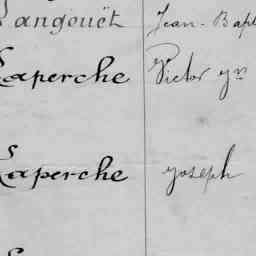 Langouët Jean-Bapt
Laperche Victor yn
Laperche joseph